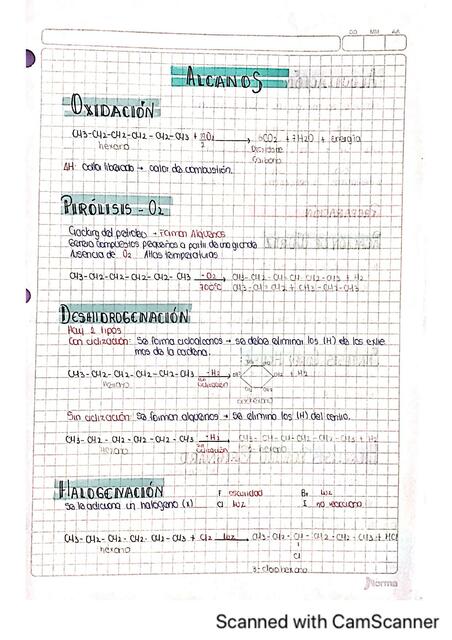 DD MM AA
ALCANOS
OXIDACIÓN
CH3-CH2-CH2-CH2-CH2-CH3 + 19/2 O2 → 6CO2 + 7H2O + Energía
hexano Dióxido de Carbono
ΔH: calor liberado → calor de combustión.
PIRÓLISIS - O2
Cracking del petróleo → Forman Alquenos
Genera compuestos pequeños a partir de una grande
Ausencia de O2 Altas temperaturas
CH3-CH2-CH2-CH2-CH2-CH3 - O2 → CH3-CH2-CH=CH-CH2-CH3 + H2
700°C CH3-CH=CH2 + CH2-CH2-CH3
DESHIDROGENACIÓN
Hay 2 tipos
Con ciclización: Se forma cicloalcanos → se debe eliminar los (H) de los extre
mos de la cadena.
CH3-CH2-CH2-CH2-CH2-CH3 -H2 → + H2
hexano ciclización
Sin ciclización: Se forman alquenos → se elimina los (H) del centro.
CH3-CH2-CH2-CH2-CH2-CH3 -H2 → CH3-CH=CH-CH2-CH2-CH3 + H2
hexano ciclización
HALOGENACIÓN
F oscuridad Br luz
Se le adiciona un halógeno (X) Cl luz I no reacciona
CH3-CH2-CH2-CH2-CH2-CH3 + Cl2 luz → CH3-CH2-CH-CH2-CH2-CH3 + HCl
hexano Cl
3-clorohexano
Norma
Scanned with CamScanner